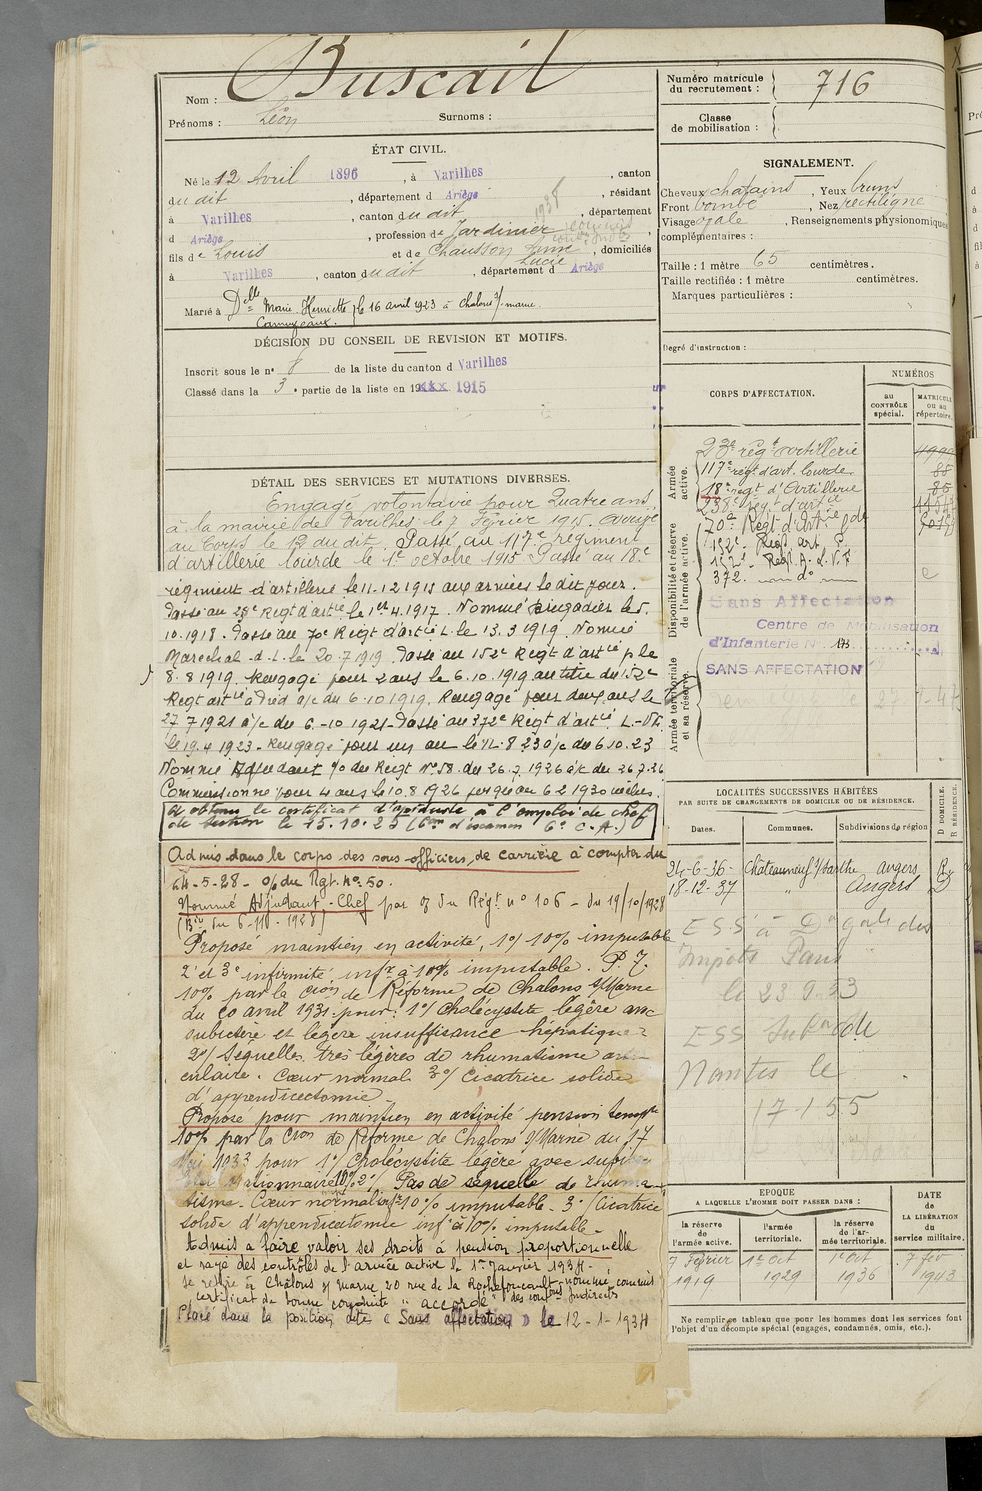 Nom : Buscail
Prénoms : Léon Surnoms :
ÉTAT CIVIL.
Né le 12 Avril 1896, à Varilhes, canton
dudit, département d Ariège, résidant
à Varilhes, canton dudit, département
d Ariège, profession de Jardinier 1938
fils de Louis et de Chausson Anne Lucie, domiciliés
à Varilhes, canton dudit, département d Ariège
Marié à Delle Marie Henriette le 16 avril 1923 à Chalons s/ marne.
DÉCISION DU CONSEIL DE REVISION ET MOTIFS.
Inscrit sous le n° 8 de la liste du canton d Varilhes
Classé dans la 3e partie de la liste en 1915
DÉTAIL DES SERVICES ET MUTATIONS DIVERSES.
Engagé volontaire pour Quatre ans
à la mairie de Varilhes le 7 Février 1915. Arrivé
au Corps le 12 du dit. Passé au 117e régiment
d'artillerie lourde le 1er octobre 1915 Passé au 18e
régiment d'artillerie le 11.12.1915 aux armées le dit jour.
Passé au Regt d'artie le 1er.4.1917. Nommé Brigadier le 5.
10.1918. Passé au 70e Regt d'artie L. le 13.3.1919. Nommé
Maréchal-d-L. le 20.7.1919. Passé au 152e Regt d'artie p le
8.8.1919. Rengagé pour 2 ans le 6.10.1919 au titre du 152e
Regt artie à Pied a/c du 6.10.1919. Rengagé pour deux ans le
27.7.1921 a/c du 6.-10.1921 - Passé au 372e Regt d'artie L.-V.F.
le 19.4.1923 - Rengagé pour un an le 11.8.23 a/c du 6.10.23
Nommé Adjudant o/ du Regt N° 58. du 26.7.1926 a/c du 26.7.26
Commissionné pour 4 ans le 10.8.1926 jusqu'au 6.2.1930
A obtenu le certificat d'aptitude à l'emploi de chef
de section le 15.10.25 (6em d'examen 6e C.A.)
Admis dans le corps des sous-officiers de carrière à compter du
24-5-28 - o/ du Rgt. n° 50.
Nommé Adjudant-Chef par o/ du Régt n° 106 - du 19/10/1928
Proposé maintien en activité, 1°/ 10% imputable
2e et 3e infirmité infre à 10% imputable. P.T.
10% par la Cion de Réforme de Chalons s/Marne
du 20 avril 1931. pour: 1°/ Cholécystite légère avec
subictère et légère insuffisance hépatique
2°/ Séquelles très légères de rhumatisme arti-
culaire. Cœur normal 3°/ Cicatrice solide
d'appendicectomie -
Proposé pour maintien en activité pension tempre
10% par la Cion de Réforme de Chalons s/Marne du 17
Mai 1933 pour 1°/ Cholécystite légère avec
stationnaire 10% 2°/ Pas de séquelle de rhuma-
tisme. Cœur normal infre 10% imputable. 3°/ Cicatrice
solide d'appendicectomie infre à 10% imputable -
Admis à faire valoir ses droits à pension proportionnelle
et rayé des contrôles de l'armée active le 1er janvier 1934.
se retire à Châlons s/ marne 20 rue de la Rochefoucault - nommé commis des contons Indirects
certificat de bonne conduite "accordé"
Placé dans la position dite « Sans affectation » le 12-1-1934
Numéro matricule du recrutement : 716
Classe de mobilisation :
SIGNALEMENT.
Cheveux chatains, Yeux bruns
Front bombé, Nez rectiligne
Visage ovale, Renseignements physionomiques
complémentaires :
Taille : 1 mètre 65 centimètres.
Taille rectifiée : 1 mètre centimètres.
Marques particulières :
Degré d'instruction :
CORPS D'AFFECTATION.
NUMÉROS
au CONTRÔLE spécial.
MATRICULE ou au répertoire.
Armée active.
23e régt artillerie
117e régt d'art. lourde 88
18e régt d'Artillerie 85
238e régt d'artie
Disponibilité et réserve de l'armée active.
70e Régt d'Artie
152e Regt art P.
Regt A.L.V.F
372. d°
Sans Affectation
Centre de Mobilisation
d'Infanterie N° 173
Armée territoriale et sa réserve
SANS AFFECTATION
LOCALITÉS SUCCESSIVES HABITÉES
PAR SUITE DE CHANGEMENTS DE DOMICILE OU DE RÉSIDENCE.
Dates. Communes. Subdivisions de région. D DOMICILE. R RÉSIDENCE.
24-6-36 - Châteauneuf s/ sarthe angers R
18-12-37 " Angers D
ESS à Don gale des
Impôts Paris
le 23 9.53
ESS
Nantes le
17-1-55
EPOQUE
A LAQUELLE L'HOMME DOIT PASSER DANS :
DATE DE LA LIBÉRATION du service militaire.
la réserve de l'armée active.
l'armée territoriale.
la réserve de l'armée territoriale.
7 Février 1919
1er Oct 1929
1er Oct 1936
7 fév 1943
Ne remplir ce tableau que pour les hommes dont les services font
l'objet d'un décompte spécial (engagés, condamnés, omis, etc.).